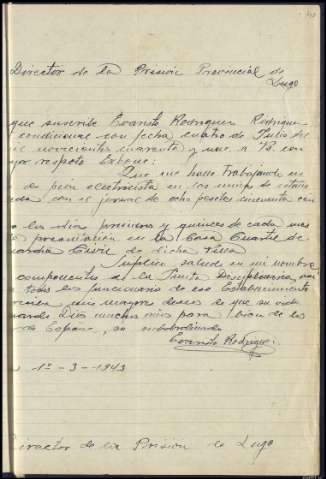 Director de la Prisión Provincial de
Lugo
que suscribe Evaristo Rodriguez Rodriguez
condicional con fecha cuatro de Julio del
novecientos cuarenta y uno a V.S. con
respeto Expone:
Que me hallo trabajando
de peón electricista en las minas de
con el jornal de ocho pesetas cincuenta cen
los días primeros y quinces de cada mes
presentación en la Casa Cuartel de
Guardia Civil de dicha
saludo en mi nombre
componentes de la Junta
todos los funcionarios de ese Establecimiento
mis mayores deseos es que su vida
Dios muchos años para bien de
España, su subordinado
Evaristo Rodriguez.
1º - 3 - 1943
Director de la Prisión de Lugo